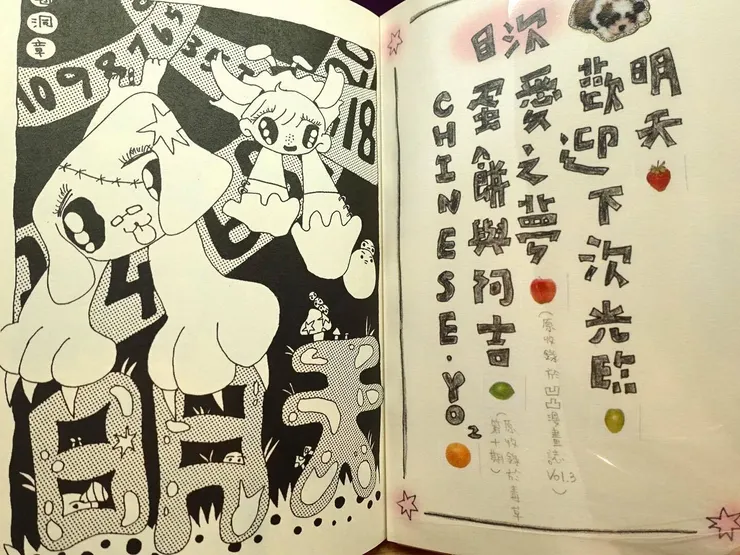 洞章
10 9 8 7 6 5
20
18
4
明天
目次
明天
歡迎下次光臨
愛之夢
(原收錄於凹凸漫畫誌 Vol.3)
蛋餅與阿吉
(原收錄於
第十期)
CHINESE.YO2